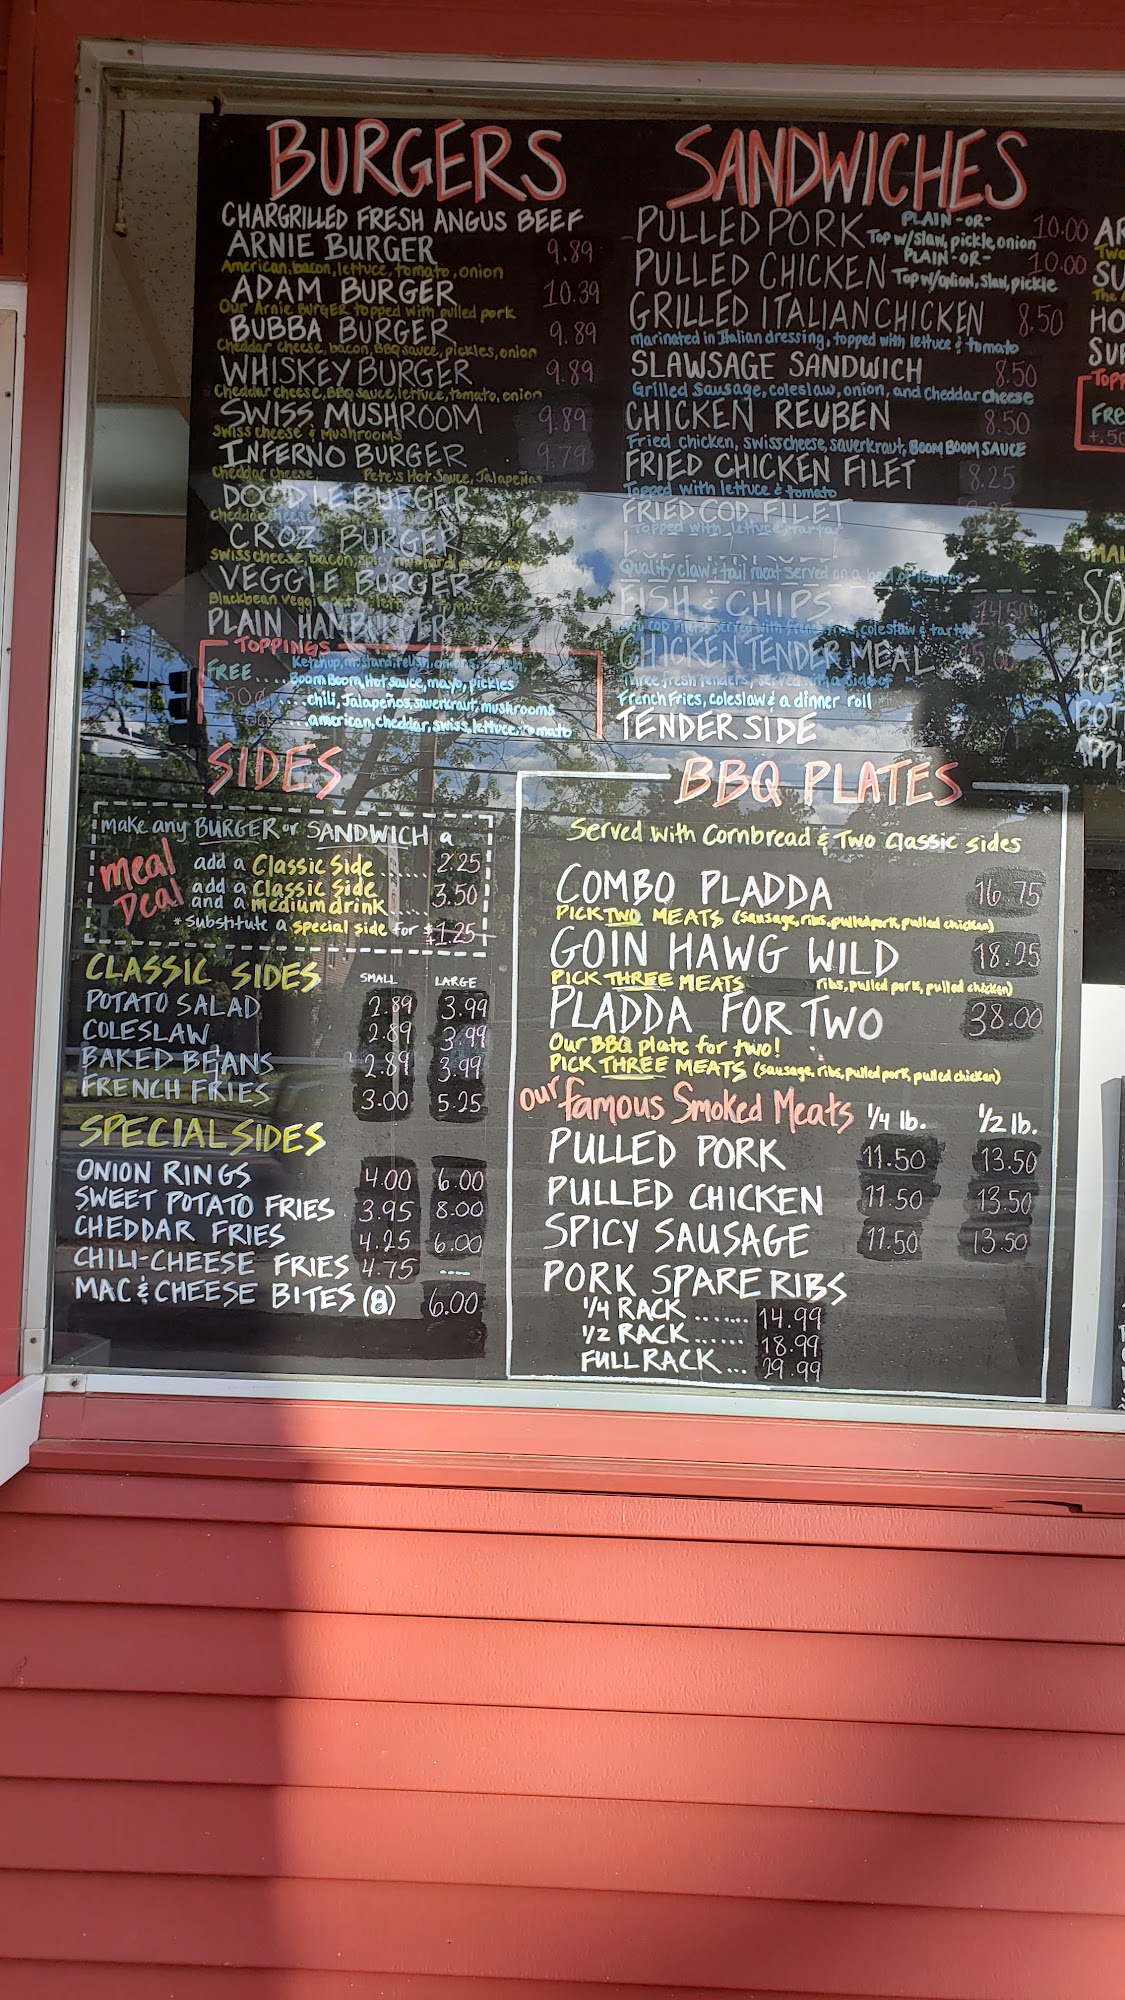 BURGERS
CHARGRILLED FRESH ANGUS BEEF
ARNIE BURGER 9.89
American, bacon, lettuce, tomato, onion
ADAM BURGER 10.39
Our Arnie BURGER topped with pulled pork
BUBBA BURGER 9.89
Cheddar cheese, bacon, BBQ sauce, pickles, onion
WHISKEY BURGER 9.89
Cheddar cheese, BBQ sauce, lettuce, tomato, onion
SWISS MUSHROOM 9.89
Swiss cheese & Mushrooms
INFERNO BURGER 9.79
Cheddar cheese Pete's Hot Sauce, Jalapeños
DOODLE BURGER
cheddar
CROZ BURGER
Swiss cheese, bacon, spicy mustard
VEGGIE BURGER
Blackbean veggie tomato
PLAIN HAMBURGER
TOPPINGS
FREE.... Ketchup, mustard, relish, onions
Boom Boom, Hot sauce, mayo, pickles
.50¢ ....chili, Jalapeños, sauerkraut, mushrooms
....american, cheddar, swiss, lettuce, tomato
SANDWICHES
PULLED PORK PLAIN -OR- Top w/slaw, pickle, onion 10.00
PULLED CHICKEN PLAIN -OR- Top w/onion, slaw, pickle 10.00
GRILLED ITALIAN CHICKEN 8.50
marinated in Italian dressing, topped with lettuce & tomato
SLAWSAGE SANDWICH 8.50
Grilled Sausage, coleslaw, onion, and Cheddar cheese
CHICKEN REUBEN 8.50
Fried chicken, swiss cheese, sauerkraut, BOOM BOOM SAUCE
FRIED CHICKEN FILET 8.25
Topped with lettuce & tomato
FRIED COD FILET
Topped with lettuce, tartar
Quality claw & tail meat served on a bed of lettuce
FISH & CHIPS 14.50
COD Filet served with french fries, coleslaw & tartar
CHICKEN TENDER MEAL
Three fresh tenders, served with a side of
French Fries, coleslaw & a dinner roll
TENDER SIDE
SIDES
make any BURGER or SANDWICH a
meal Deal
add a Classic Side ...... 2.25
add a Classic Side
and a medium drink .... 3.50
*Substitute a special side for +$1.25
CLASSIC SIDES SMALL LARGE
POTATO SALAD 2.89 3.99
COLESLAW 2.89 3.99
BAKED BEANS 2.89 3.99
FRENCH FRIES 3.00 5.25
SPECIAL SIDES
ONION RINGS 4.00 6.00
SWEET POTATO FRIES 3.95 8.00
CHEDDAR FRIES 4.25 6.00
CHILI-CHEESE FRIES 4.75 ----
MAC & CHEESE BITES (8) 6.00
BBQ PLATES
Served with Cornbread & Two Classic sides
COMBO PLADDA 16.75
PICK TWO MEATS (sausage, ribs, pulled pork, pulled chicken)
GOIN HAWG WILD 18.25
PICK THREE MEATS ribs, pulled pork, pulled chicken)
PLADDA FOR TWO 38.00
Our BBQ plate for two!
PICK THREE MEATS (sausage, ribs, pulled pork, pulled chicken)
our famous Smoked Meats 1/4 lb. 1/2 lb.
PULLED PORK 11.50 13.50
PULLED CHICKEN 11.50 13.50
SPICY SAUSAGE 11.50 13.50
PORK SPARE RIBS
1/4 RACK ...... 14.99
1/2 RACK ...... 18.99
FULL RACK... 29.99